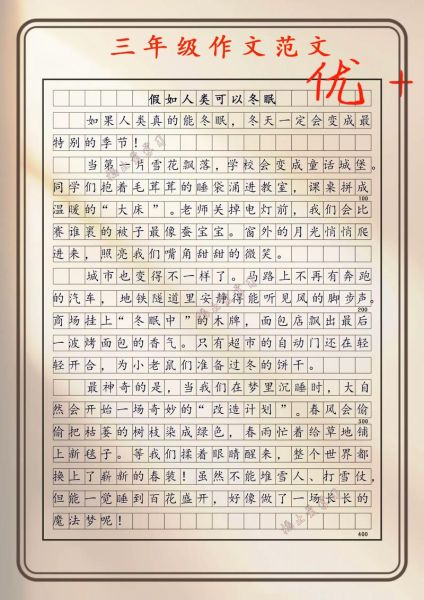 三年级作文范文
优+
假如人类可以冬眠
如果人类真的能冬眠，冬天一定会变成最
特别的季节！
当第一片雪花飘落，学校会变成童话城堡。
同学们抱着毛茸茸的睡袋涌进教室，课桌拼成
温暖的“大床”。老师关掉电灯前，我们会比
100
赛谁裹的被子最像蚕宝宝。窗外的月光悄悄爬
进来，照亮我们嘴角甜甜的微笑。
城市也变得不一样了。马路上不再有奔跑
的汽车，地铁隧道里安静得能听见风的脚步声。
200
商场挂上“冬眠中”的木牌，面包店飘出最后
一波烤面包的香气。只有超市的自动门还在轻
轻开合，为小老鼠们准备过冬的饼干。
最神奇的是，当我们在梦里沉睡时，大自
然会开始一场奇妙的“改造计划”。春风会偷
300
偷把枯萎的树枝染成绿色，春雨忙着给草地铺
上新毯子。等我们揉着眼睛醒来，整个世界都
换上了崭新的春装！虽然不能堆雪人、打雪仗，
但能一觉睡到百花盛开，好像做了一场长长的
魔法梦呢！
400